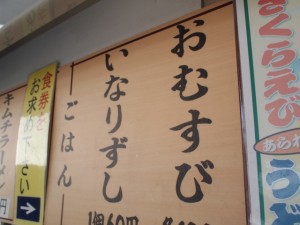 さくらえび
あられ
おむすび
いなりずし
1個60円
―ごはん―
食券を
お求め下さい
キムチラーメン
円